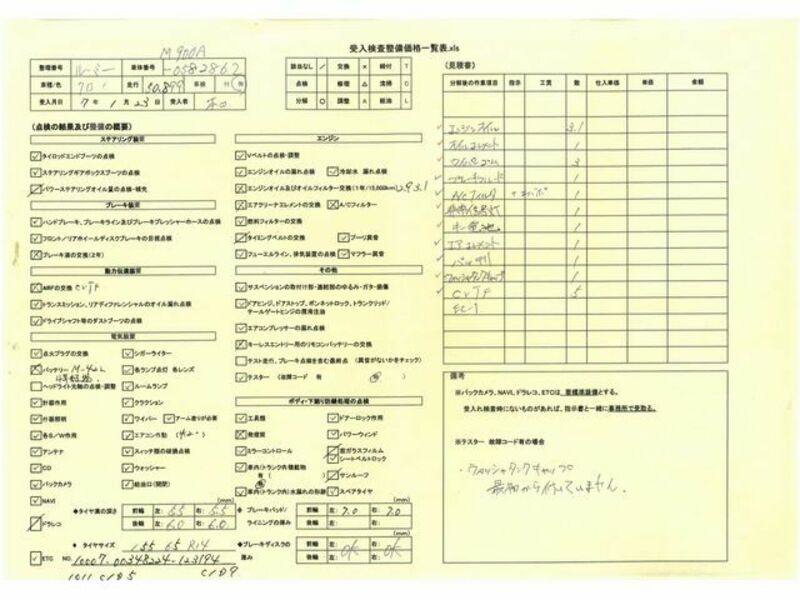 受入検査整備価格一覧表.xls
M900A
整理番号 ルーミー 車体番号 -0582862
車種/色 クロ 走行 50,899 車検 付
受入月日 7年 1月 23日 受入者
該当なし / 交換 × 締付 T
点検 レ 修理 △ 清掃 C
分解 ○ 調整 A 給油 L
(点検の結果及び整備の概要)
ステアリング装置
タイロッドエンドブーツの点検
ステアリングギアボックスブーツの点検
パワーステアリングオイル量の点検・補充
ブレーキ装置
ハンドブレーキ、ブレーキライン及びブレーキプレッシャーホースの点検
フロント/リアホイールディスクブレーキの目視点検
ブレーキ液の交換(2年)
動力伝達装置
MRFの交換 CVTF
トランスミッション、リアディファレンシャルのオイル漏れ点検
ドライブシャフト等のダストブーツの点検
電気装置
点火プラグの交換 シガーライター
バッテリー M-42L 各ランプ点灯 各レンズ
ヘッドライト光軸の点検・調整 ルームランプ
計器作用 クラクション
計器照明 ワイパー アーム塗りが必要
各S/W作用 エアコン作動
アンテナ スイッチ類の破損点検
CD ウォッシャー
バックカメラ 給油口(開閉)
NAVI
ドラレコ
(mm)
◆タイヤ溝の深さ 前輪 左: 5.5 右: 5.5
後輪 左: 6.0 右: 6.0
◆タイヤサイズ 155 65 R14
ETC NO. 10007-00348224-123194
エンジン
Vベルトの点検・調整
エンジンオイルの漏れ点検 冷却水 漏れ点検
エンジンオイル及びオイルフィルター交換(1年/15,000km)
エアクリーナエレメントの交換 A/Cフィルター
燃料フィルターの交換
タイミングベルトの交換 プーリ異音
フューエルライン、排気装置の点検 マフラー異音
その他
サスペンションの取付け部・連結部のゆるみ・ガタ・損傷
ドアヒンジ、ドアストップ、ボンネットロック、トランクリッド/
テールゲートヒンジの潤滑注油
エアコンプレッサーの漏れ点検
キーレスエントリー用のリモコンバッテリーの交換
テスト走行、ブレーキ点検を含む最終点 (異音がないかをチェック)
テスター (故障コード 有 無)
ボディ・下廻り防錆処理の点検
工具類 ドアーロック作用
発煙筒 パワーウィンド
ミラーコントロール 窓ガラスフィルム
シートベルトロック
車内(トランク内)積載物 サンルーフ
有( )
車内(トランク内)水漏れの形跡 スペアタイヤ
(mm)
◆ブレーキパッド/ 前輪 左: 7.0 右: 7.0
ライニングの厚み 後輪 左: 右:
◆ブレーキディスクの 前輪 左: 右:
厚み 後輪 左: OK 右: OK
(見積書)
分解後の作業項目 指示 工賃 数 仕入単価 単価 金額
エンジンオイル 3.1
オイルエレメント 1
ワイパーゴム 3
ブレーキフルード 1
A/Cフィルタ エバポ 1
非常信号灯 1
キー電池 1
エアエレメント 1
バッテリ 1
ウォッシャタンクキャップ 1
CVTF 5
EC-1
備考
※バックカメラ、NAVI、ドラレコ、ETCは、整備準装備とする。
受入れ検査時にないものがあれば、指示書と一緒に事務所で受取る。
※テスター 故障コード有の場合
・ウォッシャタンクキャップ
最初から付いていません。